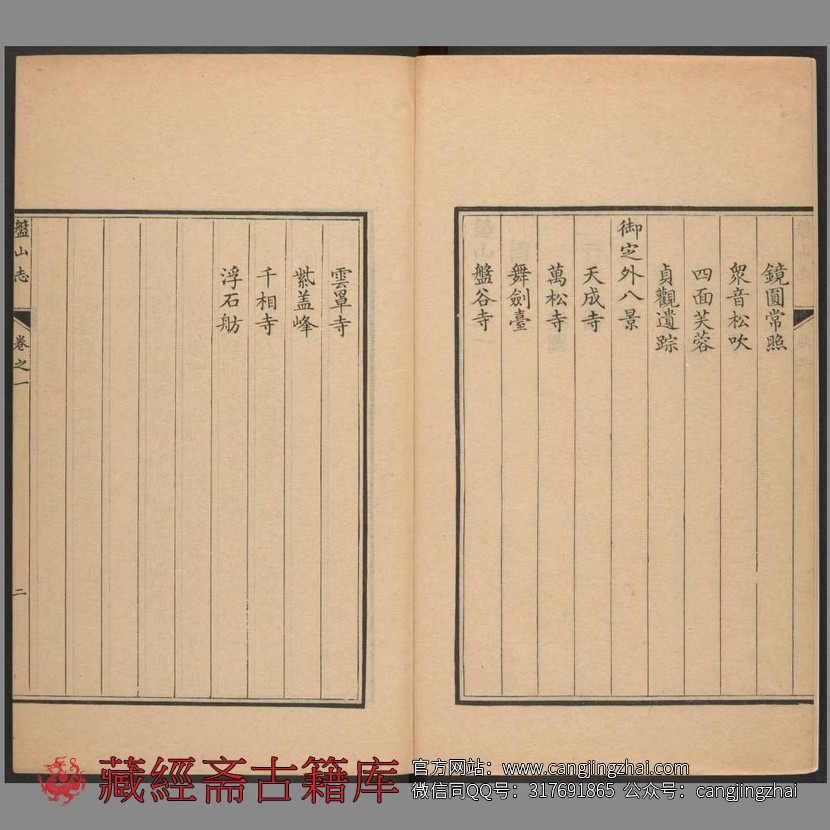 鏡圓常照
衆音松吹
四面芙蓉
貞觀遺踪
御定外八景
天成寺
萬松寺
舞劍臺
盤谷寺
雲罩寺
紫盖峰
千相寺
浮石舫
盤山志
卷之一
二
藏經斋古籍库
官方网站：www.cangjingzhai.com
微信同QQ号：317691865 公众号：cangjingzhai